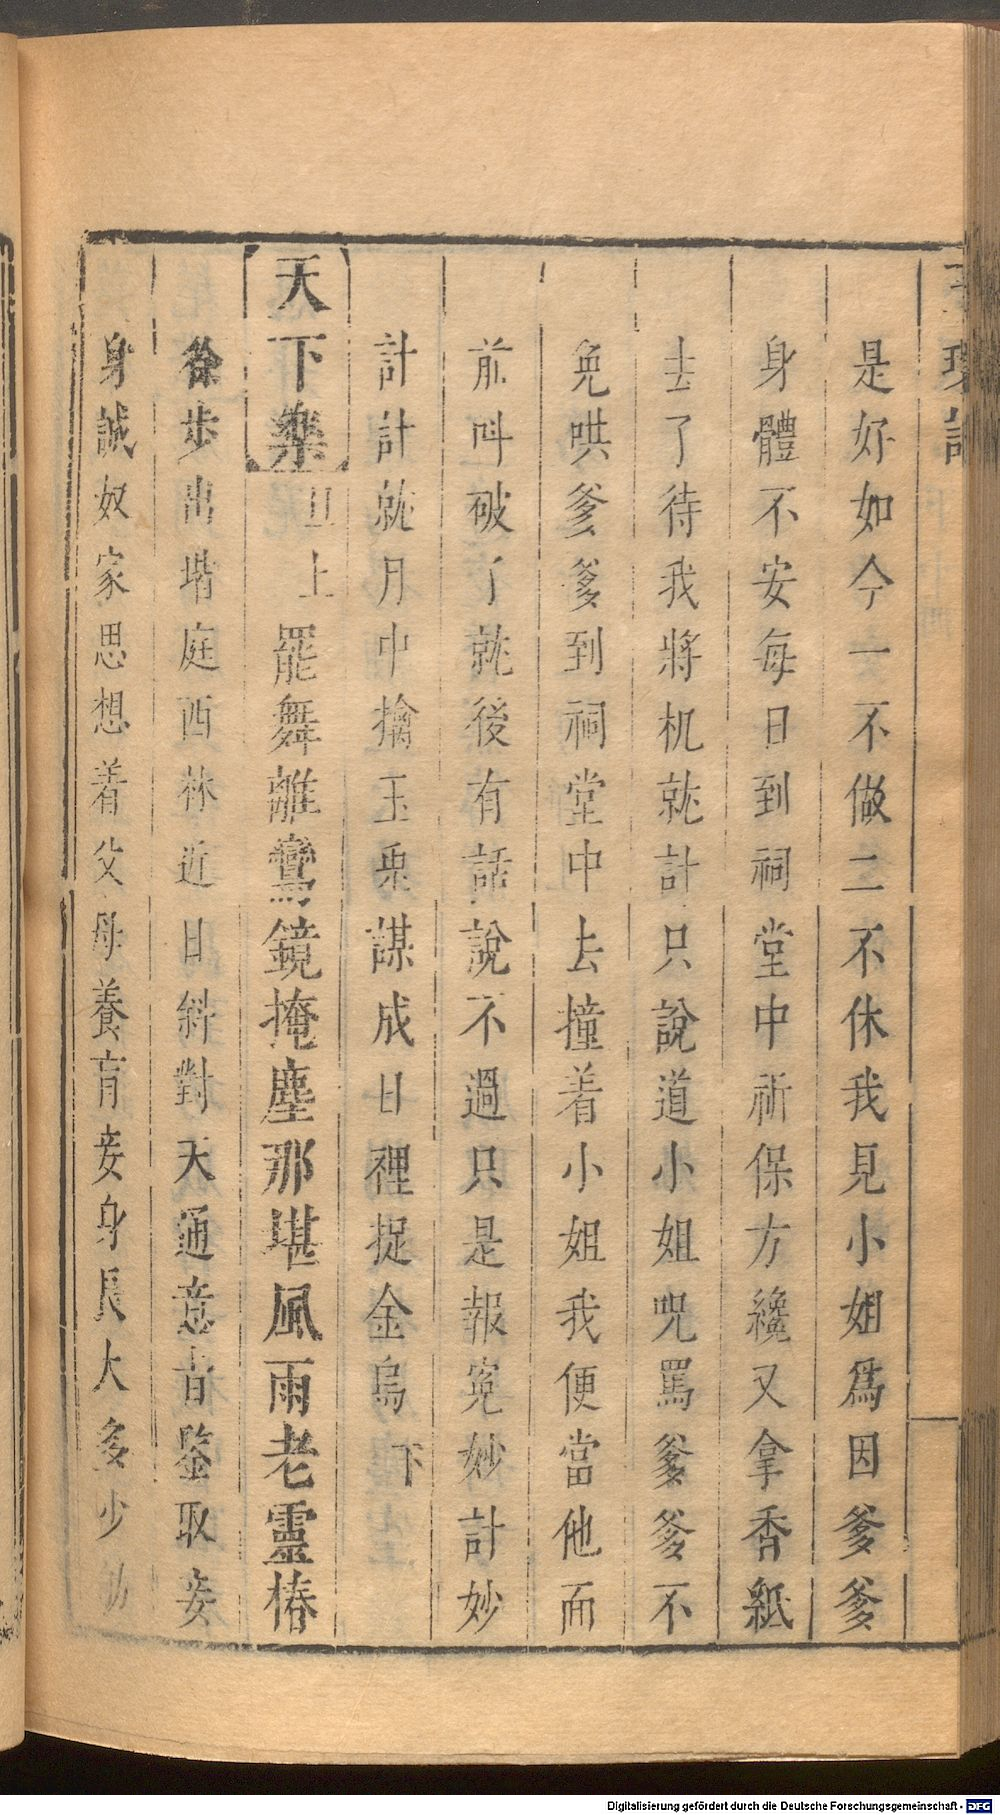 玉環記
是好如今一不做二不休我見小姐爲因爹爹
身體不安每日到祠堂中祈保方纔又拿香紙
去了待我將机就計只說道小姐咒罵爹爹不
免哄爹爹到祠堂中去撞着小姐我便當他而
前叫破了就後有話說不過只是報寃妙計妙
計計就月中擒玉兎謀成日裡捉金烏下
天下樂旦上罷舞離鸞鏡掩塵那堪風雨老靈椿
徐步出堦庭西林近日斜對天通意旨鑒取妾
身誠奴家思想着父母養育妾身長大多少劬
Digitalisierung gefördert durch die Deutsche Forschungsgemeinschaft - DFG